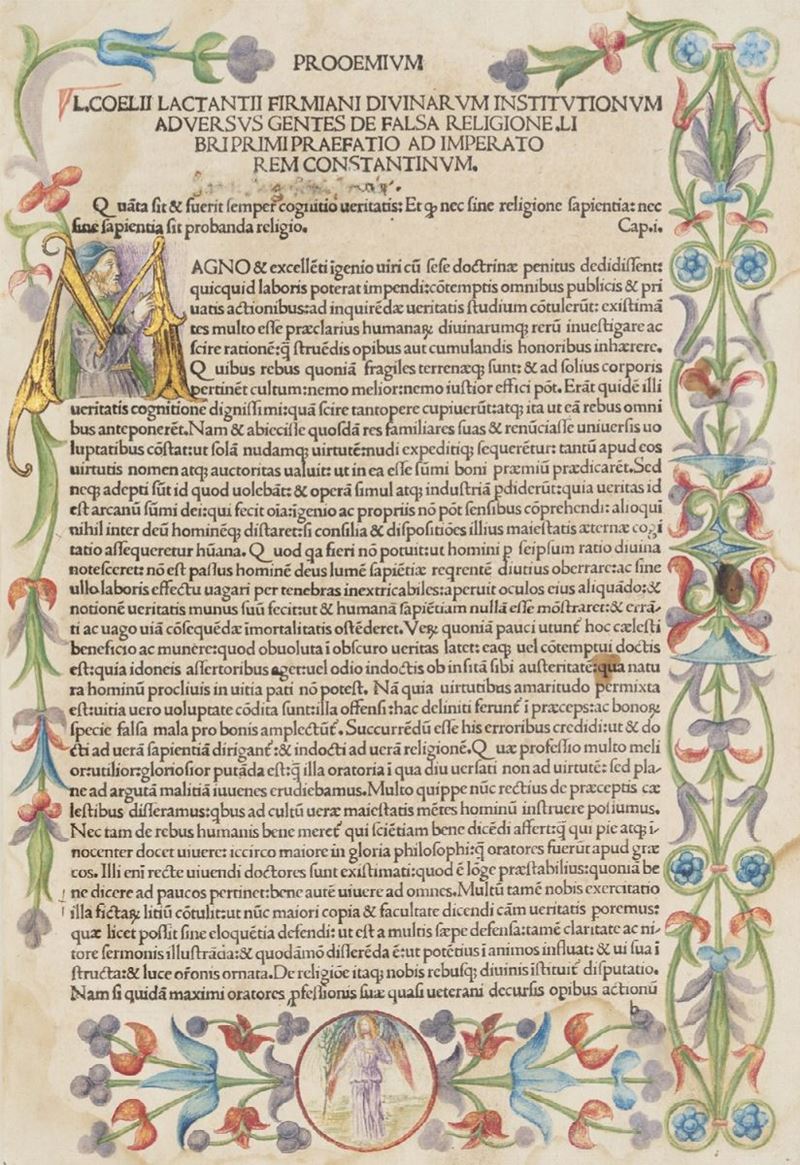 PROOEMIVM
L.COELII LACTANTII FIRMIANI DIVINARVM INSTITVTIONVM
ADVERSVS GENTES DE FALSA RELIGIONE.LI
BRI PRIMI PRAEFATIO AD IMPERATO
REM CONSTANTINVM.
Quãta sit & fuerit semper cognitio ueritatis: Et ꝙ nec sine religione sapientia: nec
sine sapientia sit probanda religio. Cap.i.
MAGNO & excellẽti ĩgenio uiri cũ sese doctrinæ penitus dedidissent:
quicquid laboris poterat impendi:cõtemptis omnibus publicis & pri
uatis actionibus:ad inquirẽdæ ueritatis studium cõtulerũt: existimã
tes multo esse præclarius humanaꝝ diuinarumqꝫ rerũ inuestigare ac
scire rationẽ:q̃ struẽdis opibus aut cumulandis honoribus inhærere.
Quibus rebus quoniã fragiles terrenæqꝫ sunt: & ad solius corporis
pertinẽt cultum:nemo melior:nemo iustior effici põt. Erãt quidẽ illi
ueritatis cognitione dignissimi:quã scire tantopere cupiuerũt:atqꝫ ita ut eã rebus omni
bus anteponerẽt.Nam & abiecisse quosdã res familiares suas & renũciasse uniuersis uo
luptatibus cõstat:ut solã nudamqꝫ uirtutẽ:nudi expeditiqꝫ sequerẽtur: tantũ apud eos
uirtutis nomen atqꝫ auctoritas ualuit: ut in ea esse sũmi boni præmiũ prædicarẽt.Sed
neqꝫ adepti sũt id quod uolebãt: & operã simul atqꝫ industriã ꝑdiderũt:quia ueritas id
est arcanũ sũmi dei:qui fecit oĩa:ĩgenio ac propriis nõ põt sensibus cõprehendi: alioqui
nihil inter deũ hominẽqꝫ distaret:si consilia & dispositiões illius maiestatis æternæ cogi
tatio assequeretur hũana. Quod qa fieri nõ potuit:ut homini ꝑ seipsum ratio diuina
notesceret: nõ est passus hominẽ deus lumẽ sapiẽtiæ reqrentẽ diutius oberrare:ac sine
ullo laboris effectu uagari per tenebras inextricabiles:aperuit oculos eius aliquãdo:&
notionẽ ueritatis munus suũ fecit:ut & humanã sapiẽtiam nullã esse mõstraret:& errã/
ti ac uago uiã cõsequẽdæ ĩmortalitatis ostẽderet. Veꝝ quoniã pauci utunt̃ hoc cælesti
beneficio ac munere:quod obuoluta ĩ obscuro ueritas latet: eaqꝫ uel cõtemptui doctis
est:quia idoneis assertoribus eget:uel odio indoctis ob insitã sibi austeritatẽ:qua natu
ra hominũ procliuis in uitia pati nõ potest. Nã quia uirtutibus amaritudo permixta
est:uitia uero uoluptate cõdita sunt:illa offensi:hac deliniti ferunt̃ ĩ præceps:ac bonoꝝ
specie falsa mala pro bonis amplectũt̃. Succurrẽdũ esse his erroribus credidi:ut & do
cti ad uerã sapientiã dirigant̃:& indocti ad uerã religionẽ.Quæ professio multo meli
or:utilior:gloriosior putãda est:q̃ illa oratoria ĩ qua diu uersati non ad uirtutẽ: sed pla/
ne ad argutã malitiã iuuenes erudiebamus.Multo quippe nũc rectius de præceptis cæ
lestibus disseramus:qbus ad cultũ ueræ maiestatis mẽtes hominũ instruere possumus.
Nec tam de rebus humanis bene meret̃ qui sciẽtiam bene dicẽdi affert:q̃ qui pie atqꝫ ĩ/
nocenter docet uiuere: iccirco maiore in gloria philosophi:q̃ oratores fuerũt apud græ
cos. Illi enĩ recte uiuendi doctores sunt existimati:quod ẽ lõge præstabilius:quoniã be
ne dicere ad paucos pertinet:bene autẽ uiuere ad omnes.Multũ tamẽ nobis exercitatio
illa fictaꝝ litiũ cõtulit:ut nũc maiori copia & facultate dicendi cãm ueritatis poremus:
quæ licet possit sine eloquẽtia defendi: ut est a multis sæpe defensa:tamẽ claritate ac ni/
tore sermonis illustrãda:& quodãmõ disserẽda ẽ:ut potẽtius ĩ animos influat: & ui sua ĩ
structa:& luce or̃onis ornata.De religiõe itaqꝫ nobis rebusqꝫ diuinis ĩstituit̃ disputatio.
Nam si quidã maximi oratores ꝓfessionis suæ quasi ueterani decursis opibus actionũ
b